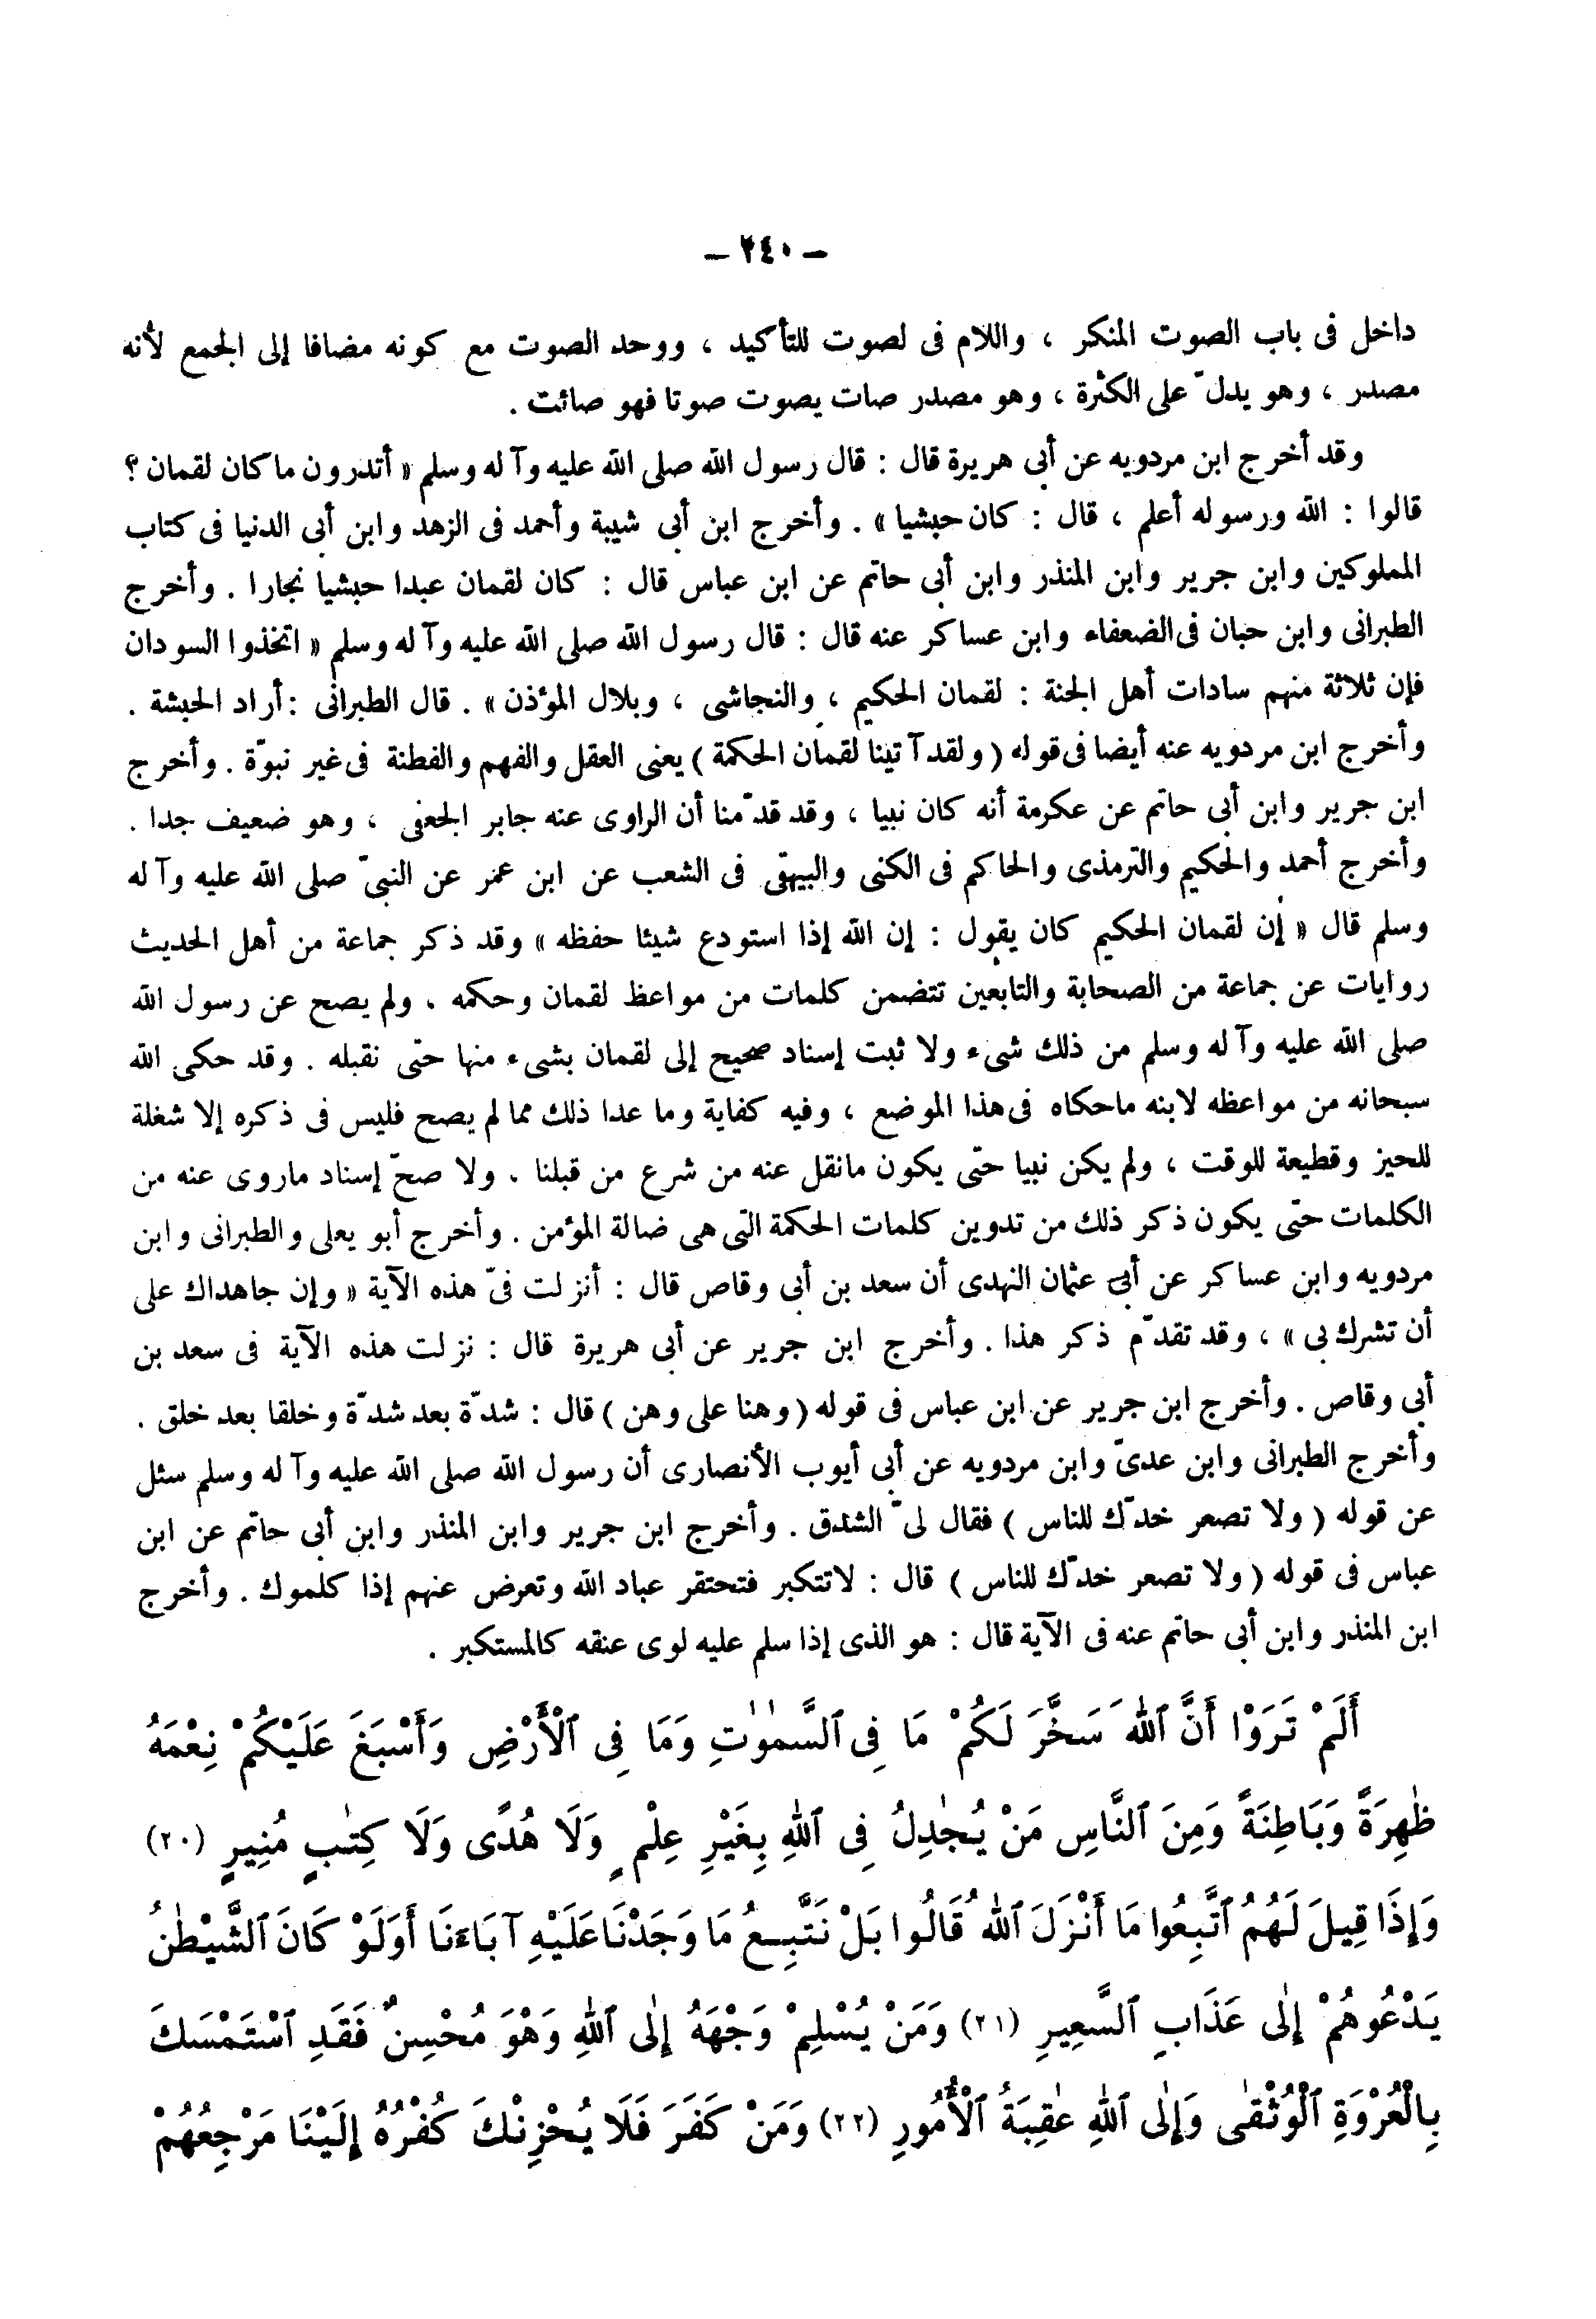 — ٢٤٠ —
داخل فى باب الصوت المنكر ، واللام فى لصوت للتأكيد ، ووحد الصوت مع كونه مضافا إلى الجمع لأنه
مصدر ، وهو يدلّ على الكثرة ، وهو مصدر صات يصوت صوتا فهو صائت .
وقد أخرج ابن مردويه عن أبى هريرة قال : قال رسول الله صلى الله عليه وآله وسلم « أتدرون ما كان لقمان ؟
قالوا : الله ورسوله أعلم ، قال : كان حبشيا » . وأخرج ابن أبى شيبة وأحمد فى الزهد وابن أبى الدنيا فى كتاب
المملوكين وابن جرير وابن المنذر وابن أبى حاتم عن ابن عباس قال : كان لقمان عبدا حبشيا نجارا . وأخرج
الطبرانى وابن حبان فى الضعفاء وابن عساكر عنه قال : قال رسول الله صلى الله عليه وآله وسلم « اتخذوا السودان
فإن ثلاثة منهم سادات أهل الجنة : لقمان الحكيم ، والنجاشى ، وبلال المؤذن » . قال الطبرانى : أراد الحبشة .
وأخرج ابن مردويه عنه أيضا فى قوله ( ولقد آتينا لقمان الحكمة ) يعنى العقل والفهم والفطنة فى غير نبوّة . وأخرج
ابن جرير وابن أبى حاتم عن عكرمة أنه كان نبيا ، وقد قدّمنا أن الراوى عنه جابر الجعفى ، وهو ضعيف جدا .
وأخرج أحمد والحكيم والترمذى والحاكم فى الكنى والبيهقى فى الشعب عن ابن عمر عن النبىّ صلى الله عليه وآله
وسلم قال « إن لقمان الحكيم كان يقول : إن الله إذا استودع شيئا حفظه » وقد ذكر جماعة من أهل الحديث
روايات عن جماعة من الصحابة والتابعين تتضمن كلمات من مواعظ لقمان وحكمه . ولم يصح عن رسول الله
صلى الله عليه وآله وسلم من ذلك شىء ولا ثبت إسناد صحيح إلى لقمان بشىء منها حتى نقبله . وقد حكى الله
سبحانه من مواعظه لابنه ماحكاه فى هذا الموضع ، وفيه كفاية وما عدا ذلك مما لم يصح فليس فى ذكره إلا شغلة
للحيز وقطيعة للوقت ، ولم يكن نبيا حتى يكون مانقل عنه من شرع من قبلنا . ولا صحّ إسناد ماروى عنه من
الكلمات حتى يكون ذكر ذلك من تدوين كلمات الحكمة التى هى ضالة المؤمن . وأخرج أبو يعلى والطبرانى وابن
مردويه وابن عساكر عن أبى عثمان النهدى أن سعد بن أبى وقاص قال : أنزلت فىّ هذه الآية « وإن جاهداك على
أن تشرك بى » ، وقد تقدّم ذكر هذا . وأخرج ابن جرير عن أبى هريرة قال : نزلت هذه الآية فى سعد بن
أبى وقاص . وأخرج ابن جرير عن ابن عباس فى قوله ( وهنا على وهن ) قال : شدّة بعد شدّة وخلقا بعد خلق .
وأخرج الطبرانى وابن عدىّ وابن مردويه عن أبى أيوب الأنصارى أن رسول الله صلى الله عليه وآله وسلم سئل
عن قوله ( ولا تصعر خدّك للناس ) فقال لىّ الشدق . وأخرج ابن جرير وابن المنذر وابن أبى حاتم عن ابن
عباس فى قوله ( ولا تصعر خدّك للناس ) قال : لاتتكبر فتحتقر عباد الله وتعرض عنهم إذا كلموك . وأخرج
ابن المنذر وابن أبى حاتم عنه فى الآية قال : هو الذى إذا سلم عليه لوى عنقه كالمستكبر .
أَلَمْ تَرَوْا أَنَّ ٱللهَ سَخَّرَ لَكُمْ مَا فِى ٱلسَّمٰوٰتِ وَمَا فِى ٱلْأَرْضِ وَأَسْبَغَ عَلَيْكُمْ نِعْمَهُ
ظٰهِرَةً وَبَاطِنَةً وَمِنَ ٱلنَّاسِ مَنْ يُجٰدِلُ فِى ٱللهِ بِغَيْرِ عِلْمٍ وَلَا هُدًى وَلَا كِتٰبٍ مُنِيرٍ (٢٠)
وَإِذَا قِيلَ لَهُمُ ٱتَّبِعُوا مَا أَنْزَلَ ٱللهُ قَالُوا بَلْ نَتَّبِعُ مَا وَجَدْنَا عَلَيْهِ آبَاءَنَا أَوَلَوْ كَانَ ٱلشَّيْطٰنُ
يَدْعُوهُمْ إِلٰى عَذَابِ ٱلسَّعِيرِ (٢١) وَمَنْ يُسْلِمْ وَجْهَهُ إِلٰى ٱللهِ وَهْوَ مُحْسِنٌ فَقَدِ ٱسْتَمْسَكَ
بِالْعُرْوَةِ ٱلْوُثْقٰى وَإِلٰى ٱللهِ عٰقِبَةُ ٱلْأُمُورِ (٢٢) وَمَنْ كَفَرَ فَلَا يُحْزِنْكَ كُفْرُهُ إِلَيْنَا مَرْجِعُهُمْ